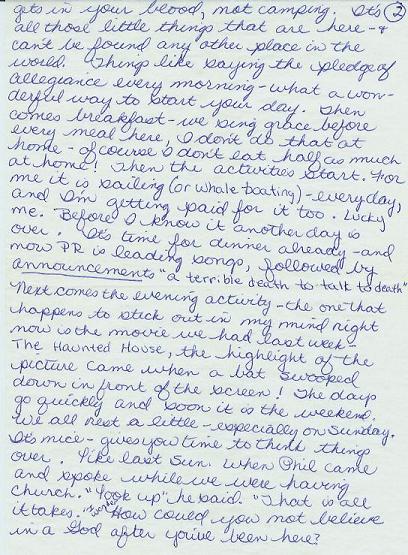 gets in your blood, not camping. It's ②
all those little things that are here - &
can't be found any other place in the
world. Things like saying the pledge of
allegiance every morning - what a won-
derful way to start your day. Then
comes breakfast - we sing grace before
every meal here, I don't do that at
home - of course I don't eat half as much
at home! Then the activities start. For
me it is sailing (or whale boating) - everyday,
and I'm getting paid for it too. Lucky
me. Before I know it another day is
over. It's time for dinner already - and
now PR is leading songs, followed by
announcements "a terrible death to talk to death"
Next comes the evening activity - the one that
happens to stick out in my mind right
now is the movie we had last week -
The Haunted House, the highlight of the
picture came when a bat swooped
down in front of the screen! The days
go quickly and soon it is the weekend.
We all rest a little - especially on Sunday.
Its nice - gives you time to think things
over. Like last Sun. when Phil came
and spoke while we were having
church. "Look up" he said. "That is all
it takes. How could you not believe
in a God after you've been here?